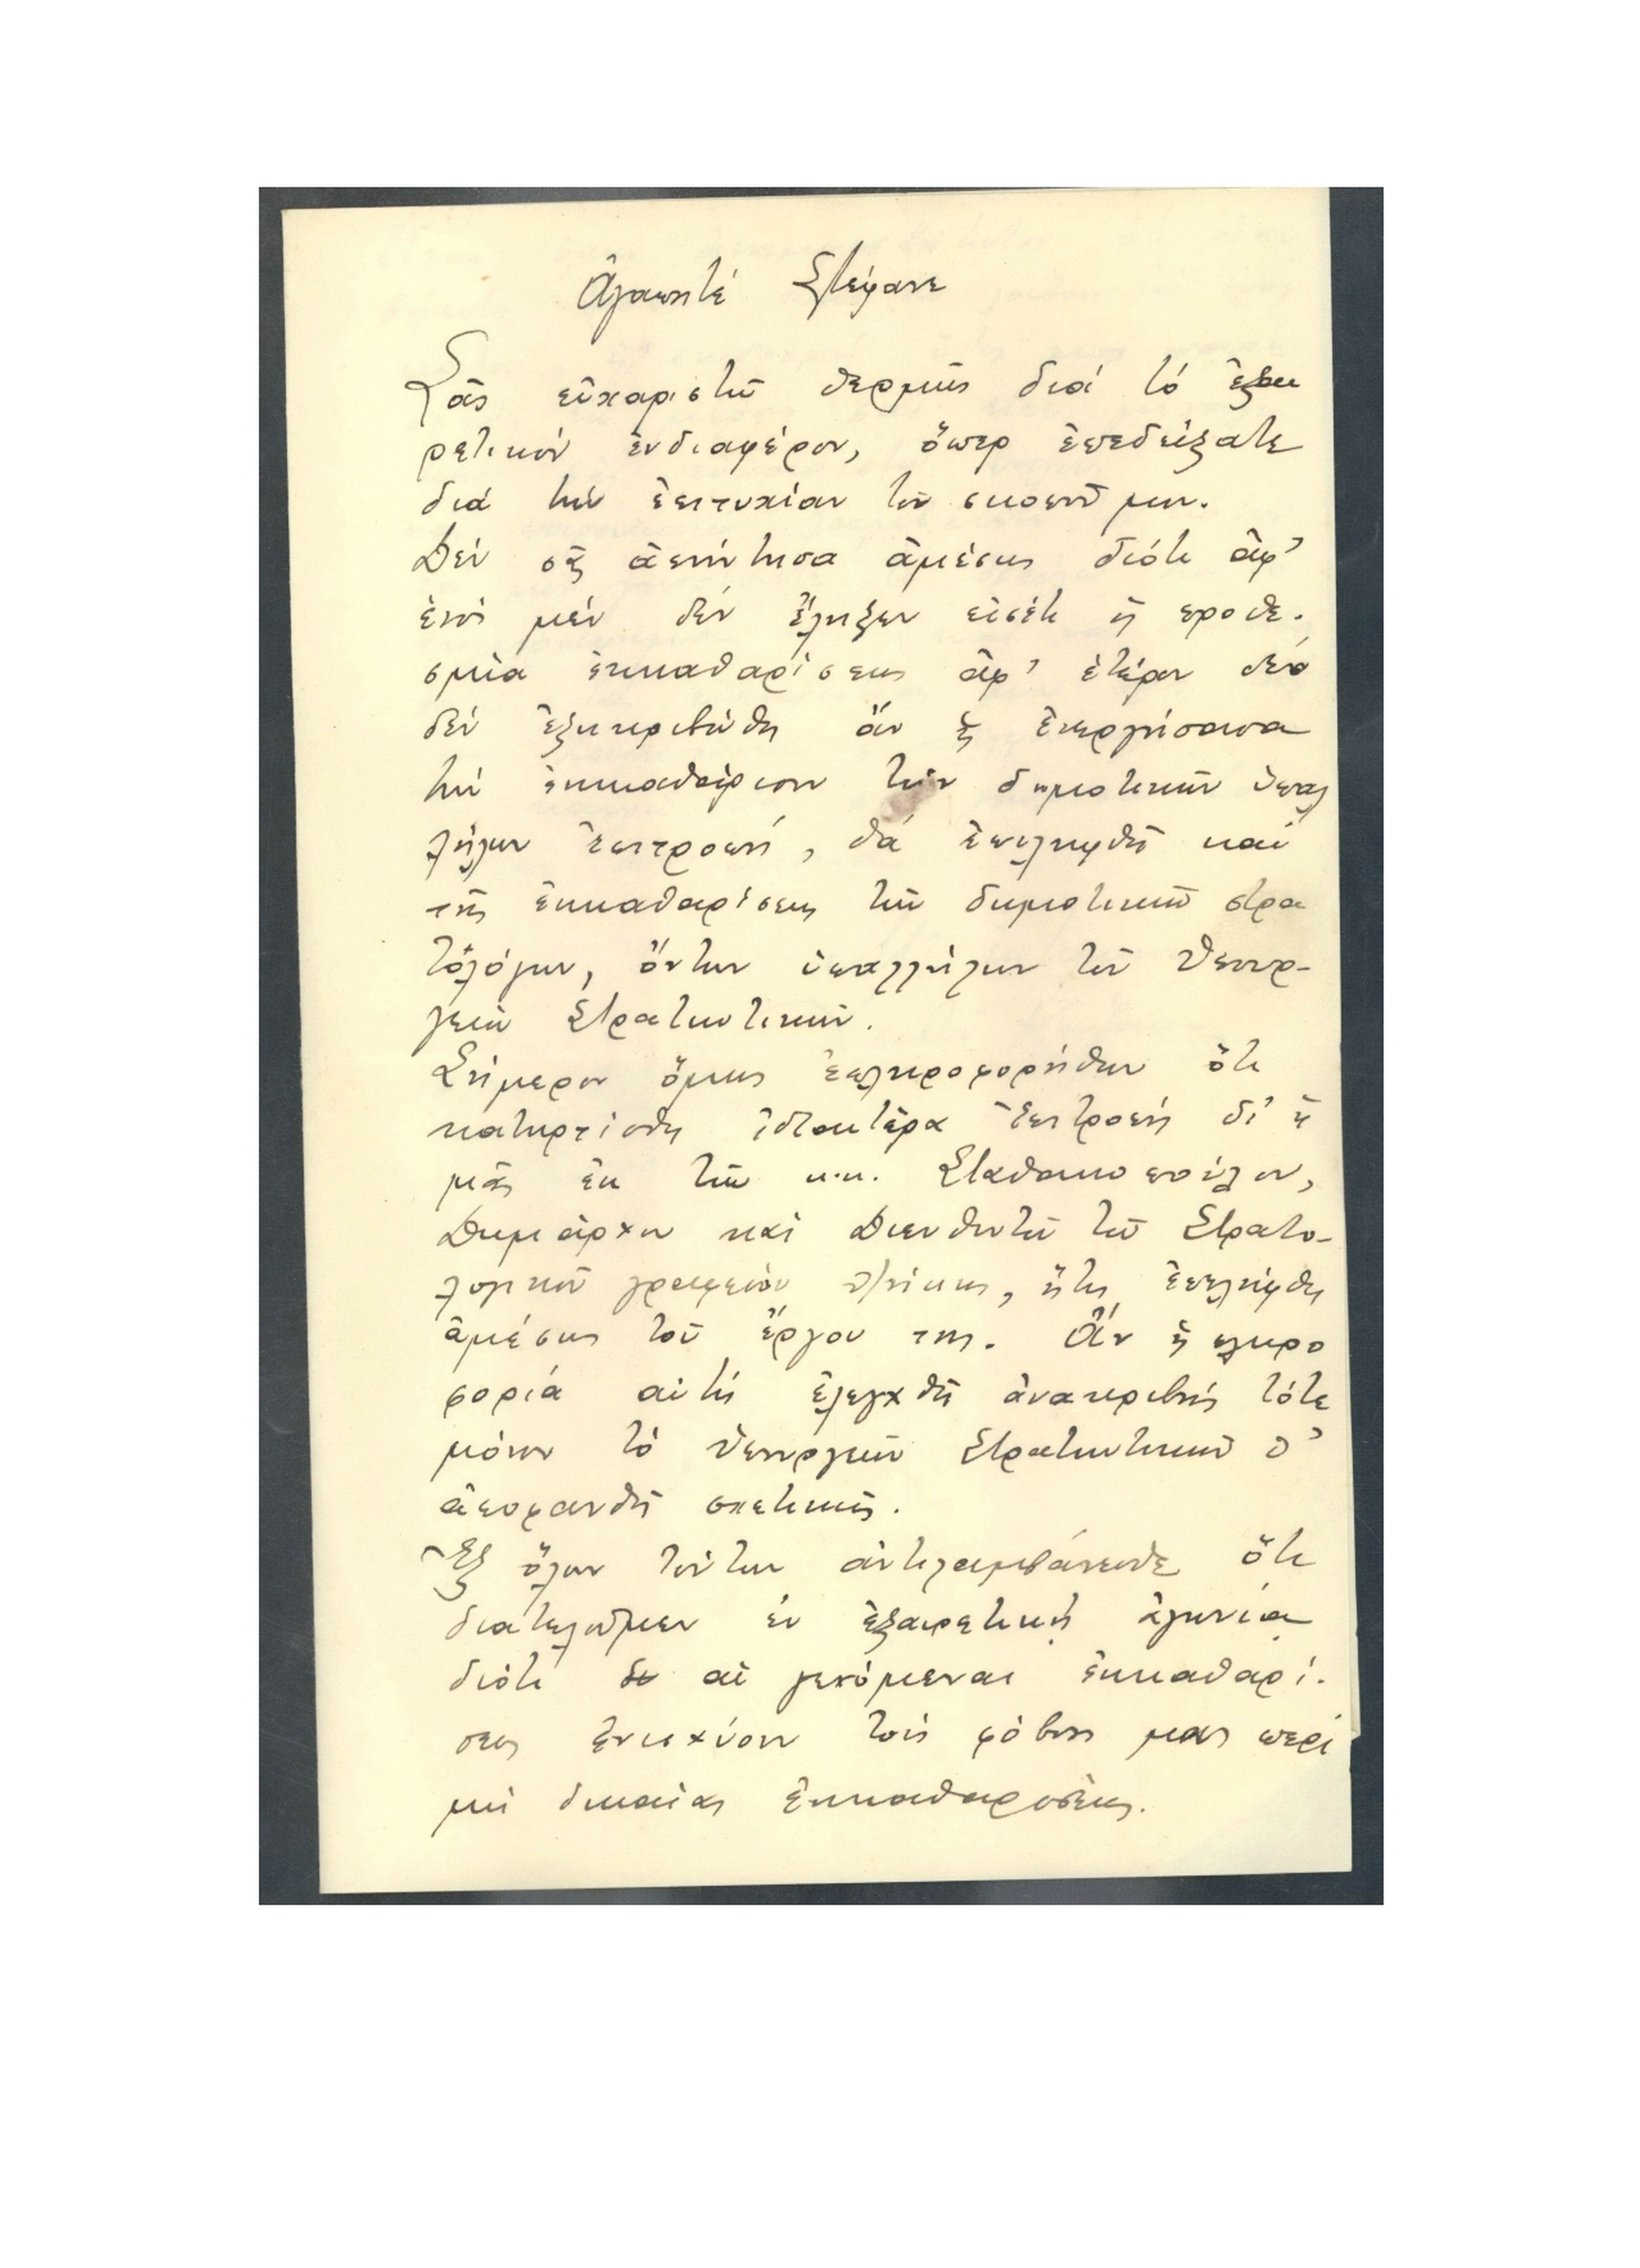 Ἀγαπητέ Στέφανε
Σᾶς εὐχαριστῶ θερμῶς διά τό ἐξαι
ρετικόν ἐνδιαφέρον, ὅπερ ἐπεδείξατε
διά τήν ἐπιτυχίαν τοῦ σκοποῦ μου.
Δέν σᾶς ἀπήντησα ἀμέσως διότι ἀφ'
ἑνός μέν δέν ἔληξεν εἰσέτι ἡ προθε-
σμία ἐκκαθαρίσεως ἀφ' ἑτέρου δέ
δέν ἐξηκριβώθη ἄν ἡ ἐνεργήσασα
τήν ἐκκαθάρισιν τῶν δημοτικῶν ὑπαλ
λήλων ἐπιτροπή, θά ἐπιληφθῆ καί
τῆς ἐκκαθαρίσεως τῶν δημοτικῶν στρα
τολόγων, ὄντων ὑπαλλήλων τοῦ Ὑπουρ-
γείου Στρατιωτικῶν.
Σήμερον ὅμως ἐπληροφορήθην ὅτι
κατηρτίσθη ἰδιαιτέρα ἐπιτροπή δι' ἡ
μᾶς ἐκ τῶν κ.κ. Σταθακοπούλου,
Δημάρχου καί Διευθυντοῦ τοῦ Στρατο-
λογικοῦ γραφείου Θ/νίκης, ἥτις ἐπελήφθη
ἀμέσως τοῦ ἔργου της. Ἄν ἡ πληρο
φορία αὐτή ἐλεγχθῆ ἀνακριβής τότε
μόνον τό Ὑπουργεῖον Στρατιωτικῶν θ'
ἀποφανθῆ σχετικῶς.
Ἐξ ὅλων τούτων ἀντιλαμβάνεσθε ὅτι
διατελοῦμεν ἐν ἐξαιρετικῇ ἀγωνίᾳ
διότι αἱ γενόμεναι ἐκκαθαρί-
σεις ἐνισχύουν τούς φόβους μας περί
μή δικαίας ἐκκαθαρίσεως.